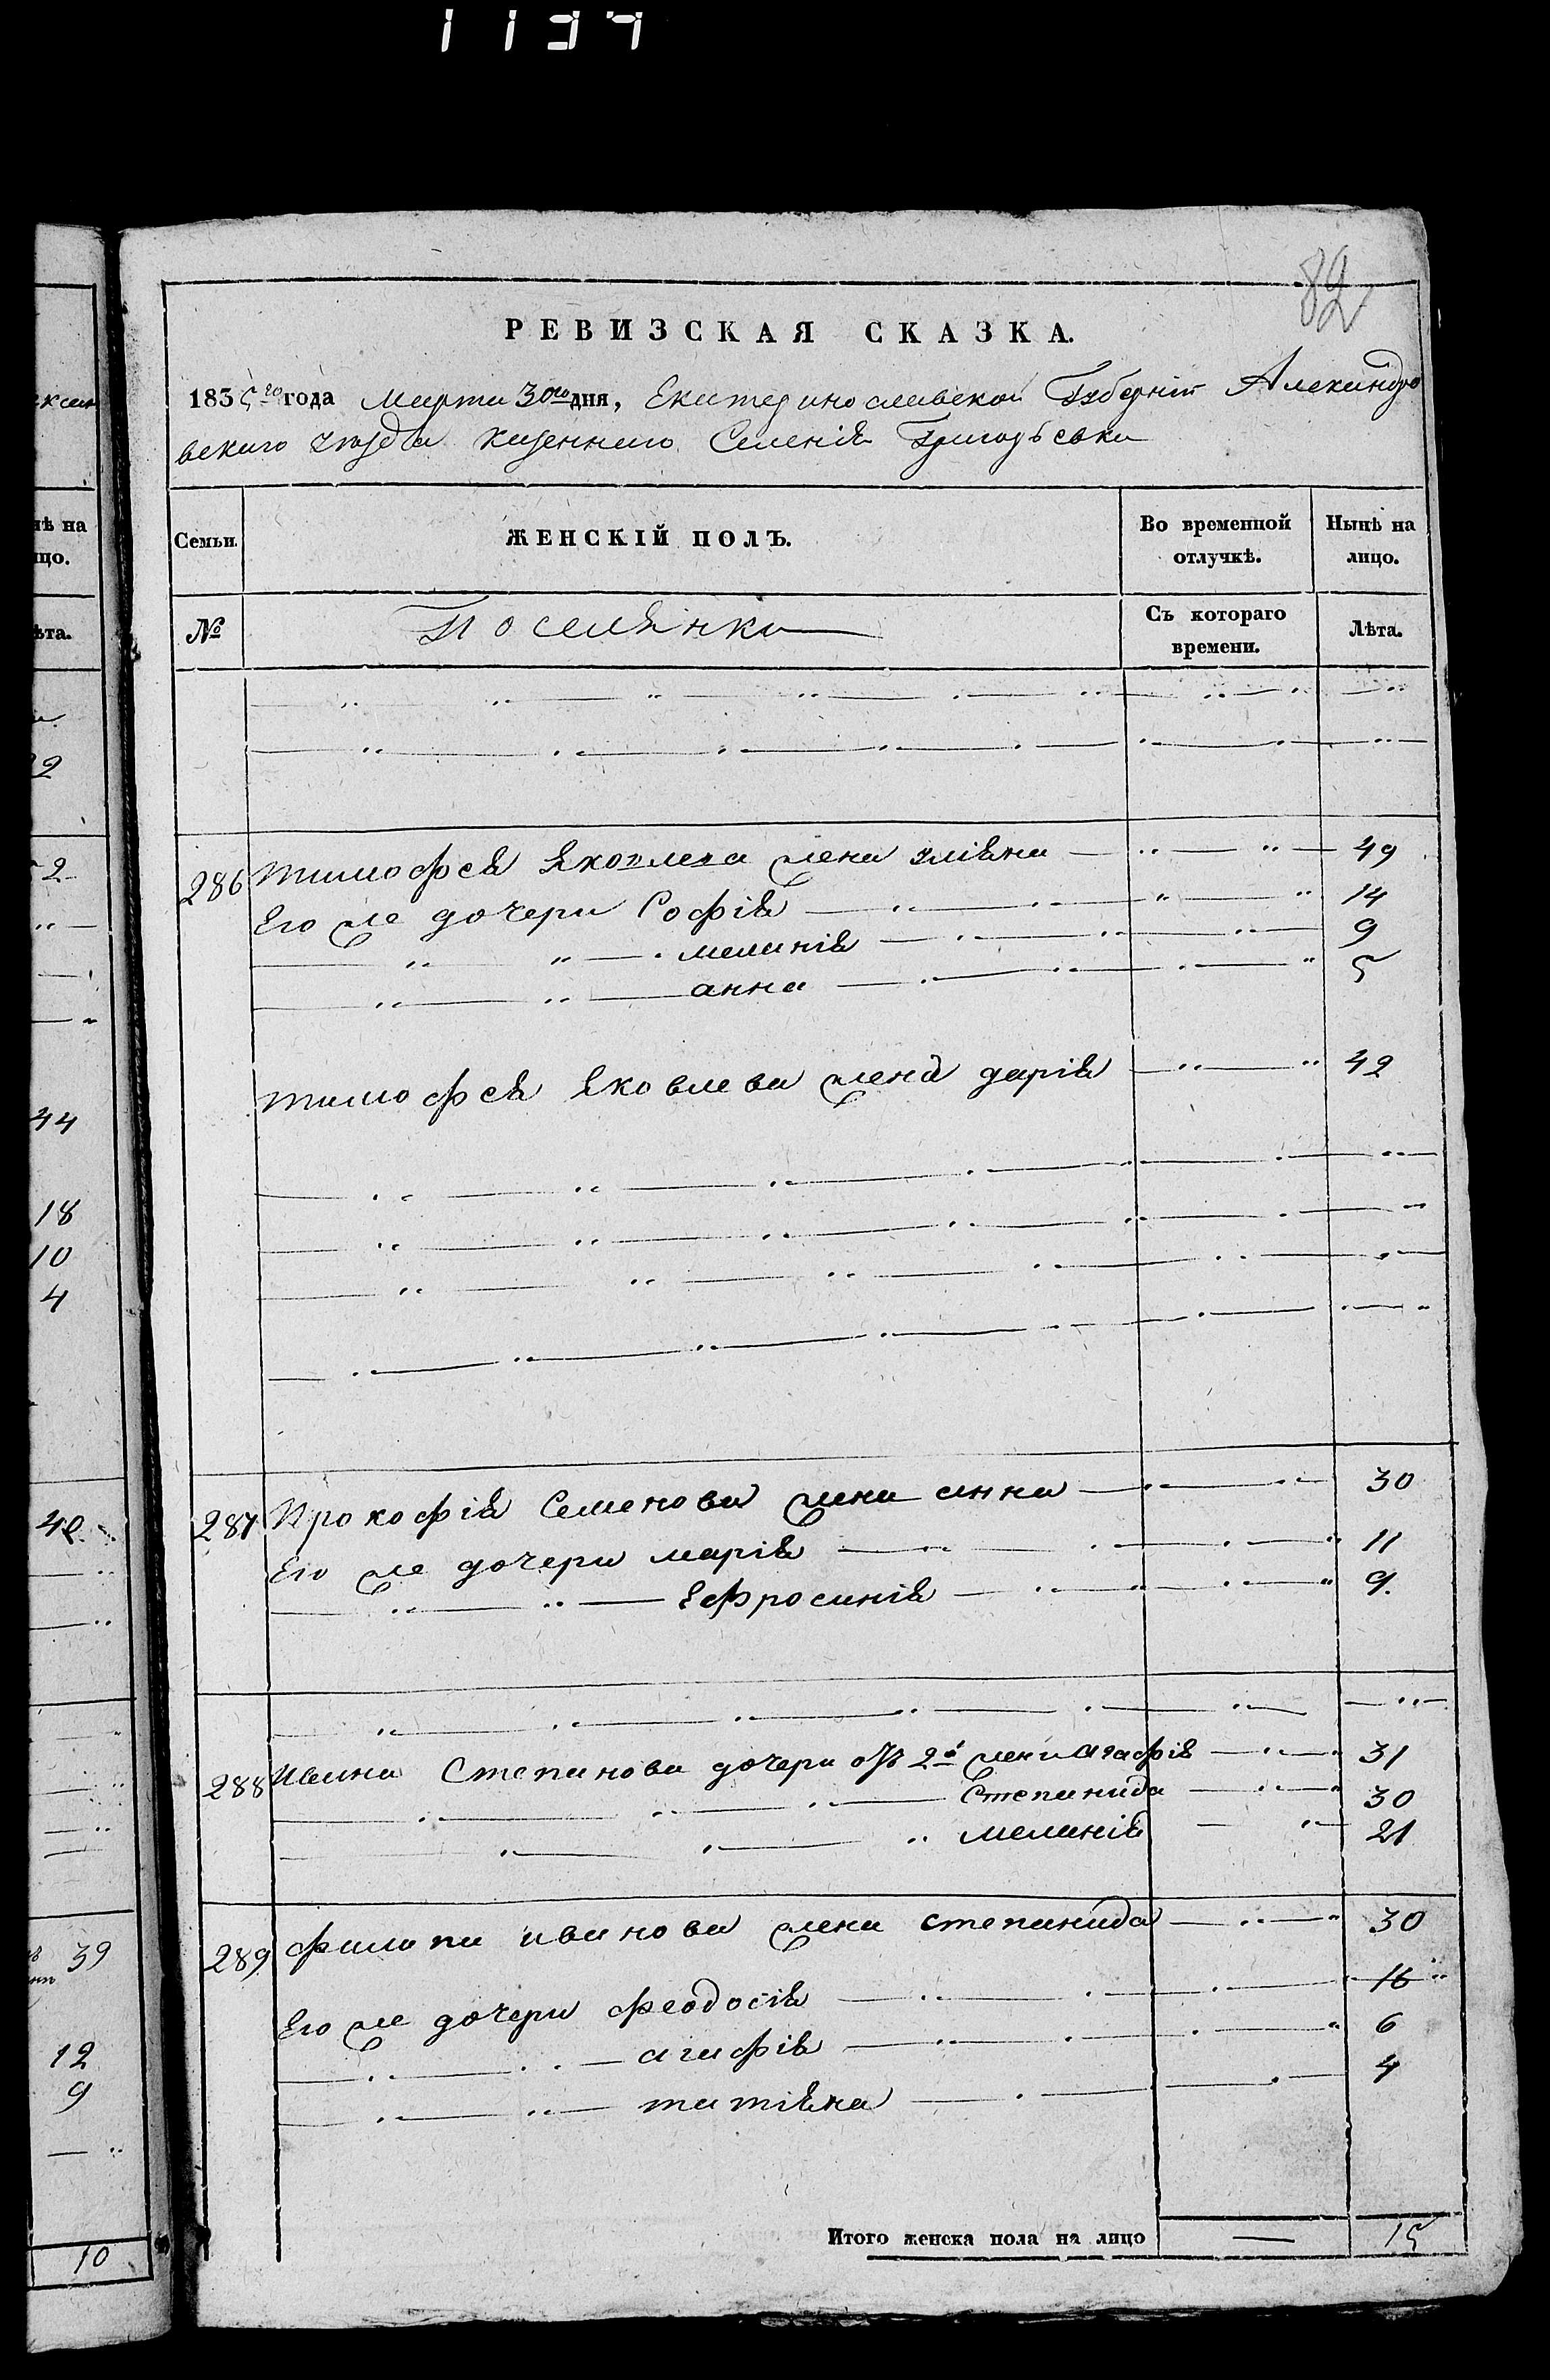 1137
82
РЕВИЗСКАЯ СКАЗКА.
1835го года Марта 30го дня, Екатеринославской Губерніи Александро
вскаго уезда казеннаго Селенія Григорьевки
Семьи. ЖЕНСКІЙ ПОЛЪ. Во временной отлучкѣ. Нынѣ на лицо.
№ Поселянки Съ котораго времени. Лѣта.
286 Тимофея Яковлева жена улiяна 49
Его же дочери Софія 14
меланія 9
анна 5
Тимофея Яковлева жена дарія 42
287 Прокофія Семенова жена анна 30
Его же дочери марія 11
Ефросинія 9.
288 Ивана Степанова дочери отъ 2й жены Агафія 31
Степанида 30
меланія 21
289 филипа иванова жена степанида 30
Его же дочери феодосія 16
агафія 6
татіяна 4
Итого женска пола на лицо — 15
нѣ на
ицо.
ѣта.
44
18
10
4
39
12
9
10